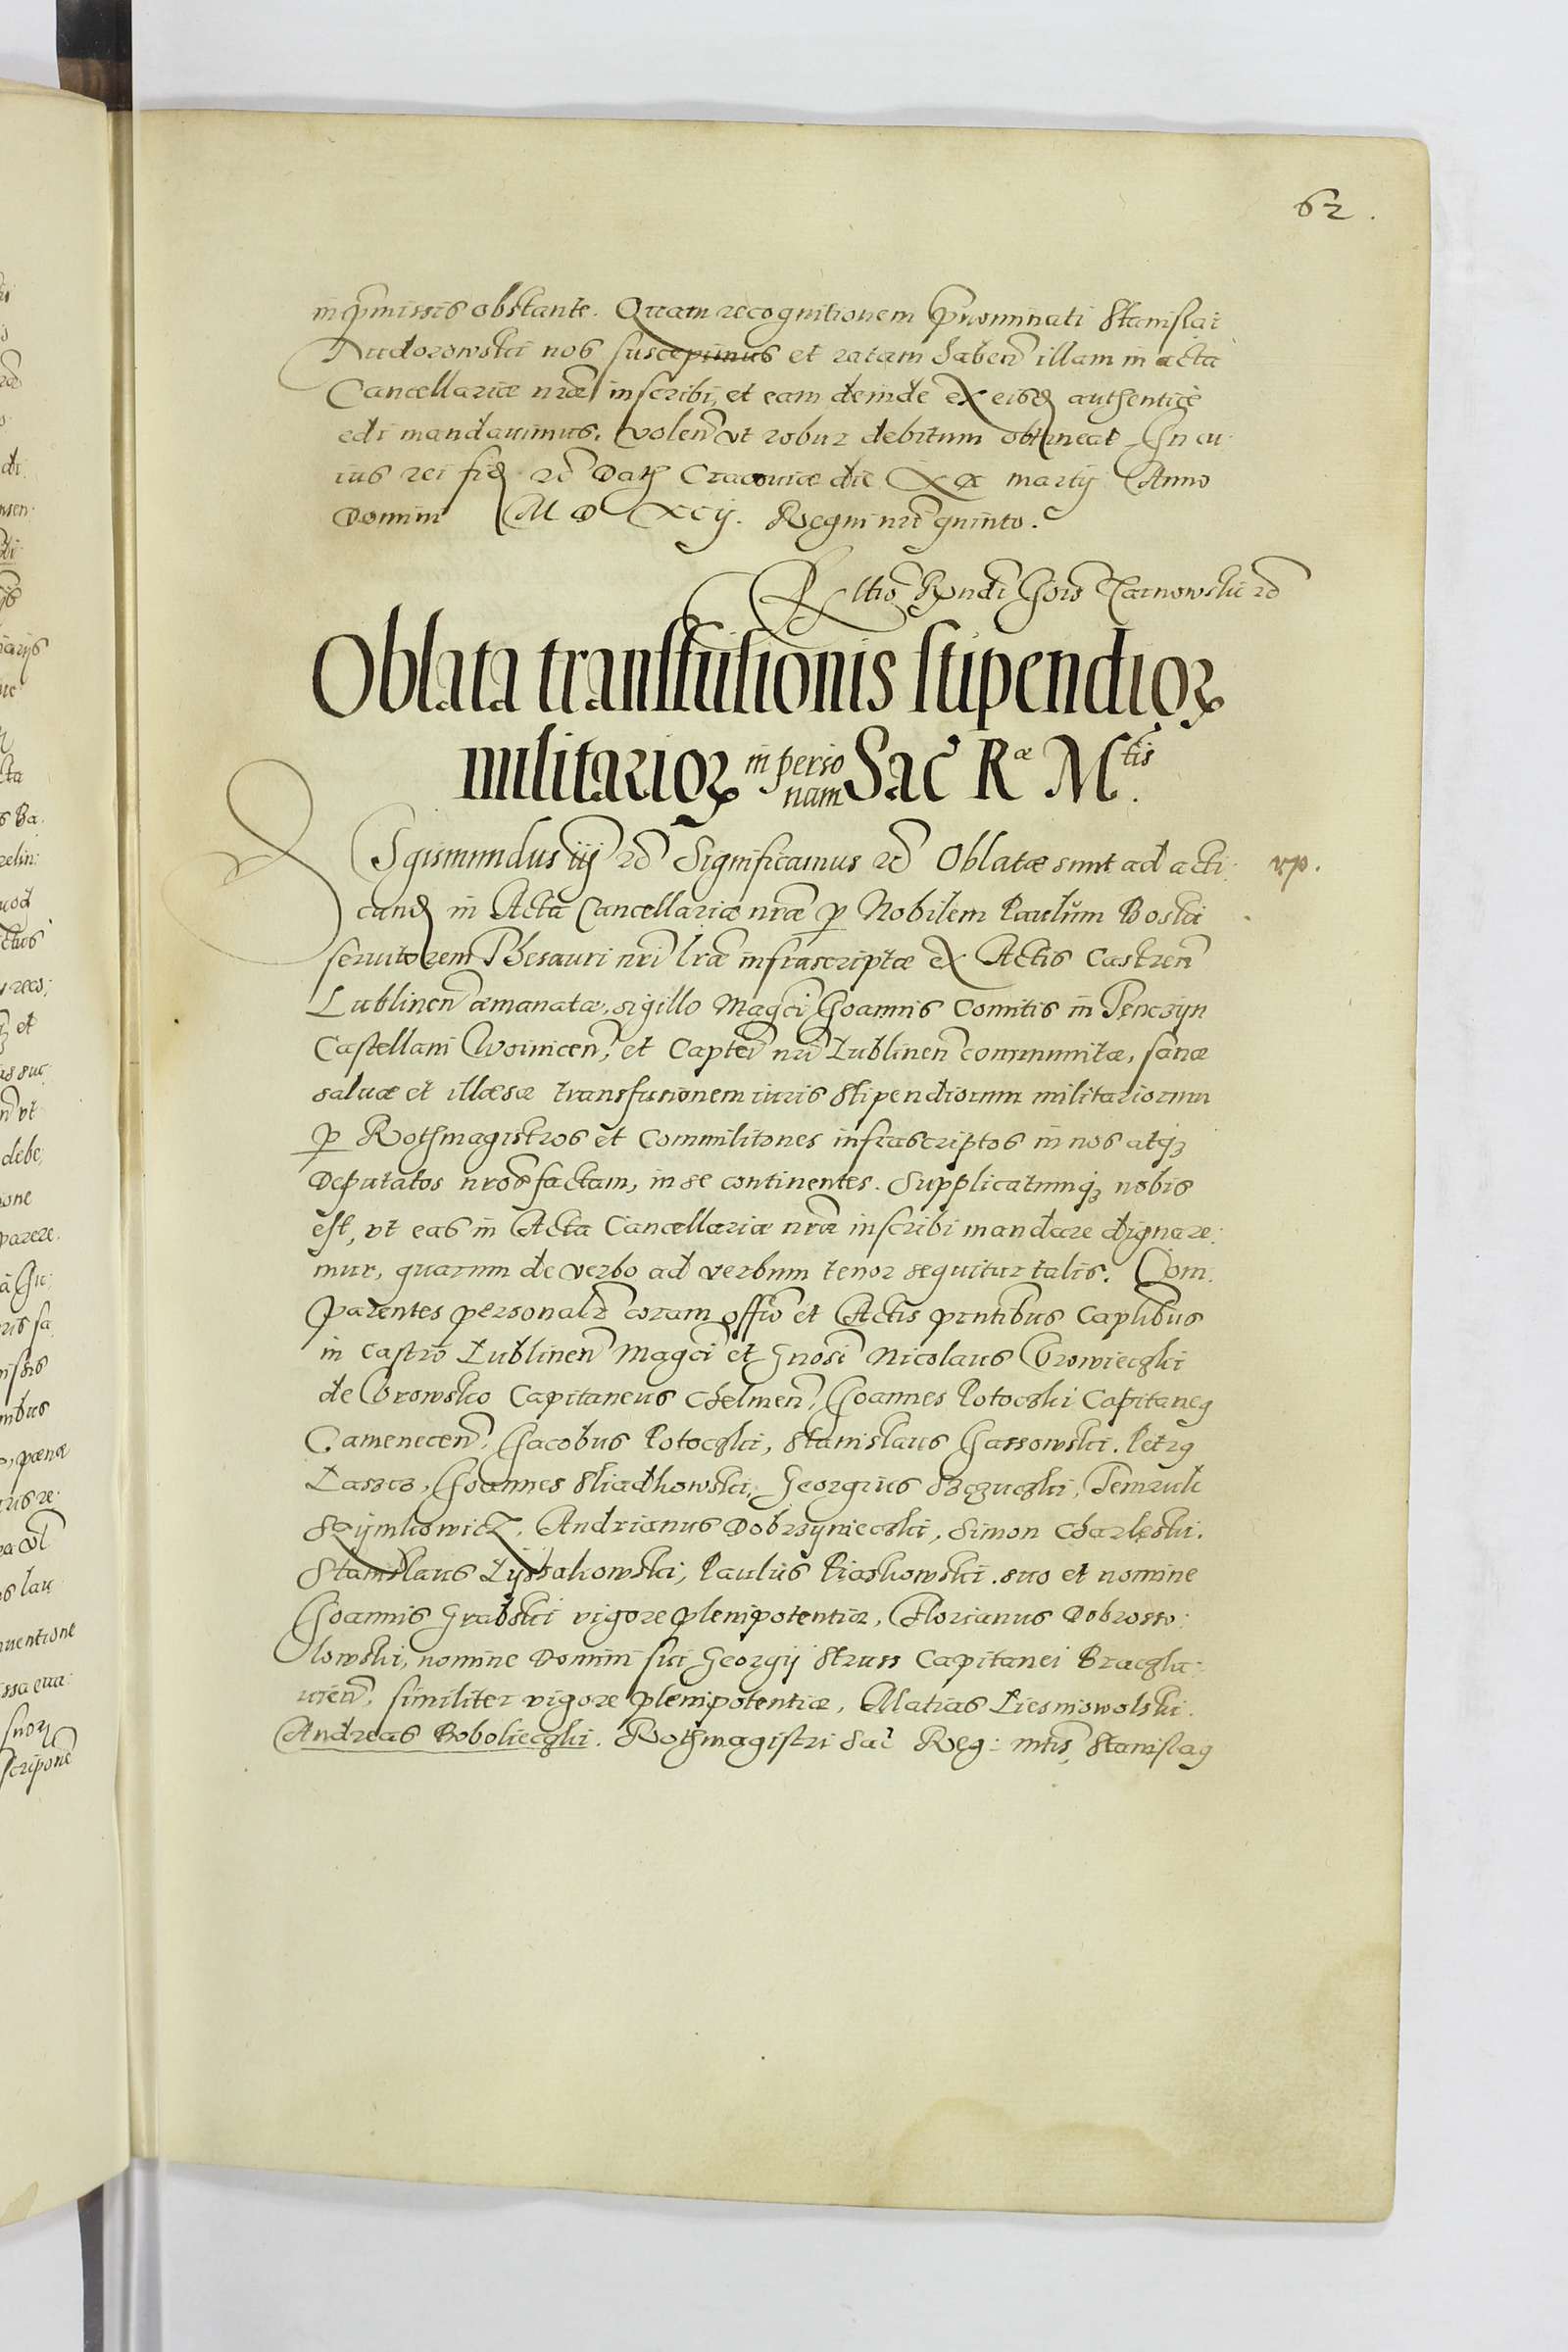 62.
in p̄missis obstante. Quam recognitionem p̄nominati Stanislai
Rudorowski nos suscepimus et ratam haben̄ illam in acta
Cancellariæ nr̄æ inscribi, et eam deinde ex eisd authenticè
edi mandauimus. Volen̄ vt robur debitum obtineat. In cu
ius rei fid etc̄ Dat Cracouiæ die XX martij Anno
Domini M D XCij. Regni nr̄i quinto.
Rltio R̄ndi Joīs Tarnowski etc̄
Oblata transfusionis stipendioꝝ
militarioꝝ in perso
nam Sac̄ Rᵃᵉ Mᵗⁱˢ.
SIgismundus iij etc̄ Significamus etc̄ Oblatæ sunt ad acti: vp.
cand in Acta Cancellariæ nr̄æ ꝑ Nobilem Paulum Boski
seruitorem Thesauri nr̄i lr̄æ infrascriptæ ex Actis Castren̄
Lublinen̄ æmanatæ, sigillo Magc̄i Joannis Comitis in Tenczyn
Castellani Woinicen̄, et Captei nr̄i Lublinen̄ communitæ, sanæ
saluæ et illæsæ transfusionem iuris Stipendiorum militariorum
ꝑ Rothmagistros et Commilitones infrascriptos in nos atqꝫ
Deputatos nr̄os factam, in se continentes. Supplicatumqꝫ nobis
est, vt eas in Acta Cancellariæ nr̄æ inscribi mandare dignare:
mur, quarum de verbo ad verbum tenor sequitur talis. Com:
parentes personalr̄ coram offīo et Actis pn̄tibus Caplibus
in castro Lublinen̄ Magc̄i et Gn̄osi Nicolaus Vrowieczki
de Vrowsko Capitaneus Chelmen̄, Joannes Potoczki Capitaneꝯ
Camenecen̄, Jacobus Potoczki, Stanislaus Jassowski. Petrꝯ
Laszcz, Joannes Sliadkowski, Georgius Strzuczki, Temruk
Szymkowicz, Andrianus Dobrzynieczki, Simon Charleski.
Stanislaus Lyssakowski, Paulus Piaskowski. suo et nomine
Joannis Grabski vigore plenipotentiæ, Florianus Dobrosso:
lowski, nomine Domini sui Georgij Struss Capitanei Braczla:
uien̄, similiter vigore plenipotentiæ, Matias Liesniowolski.
Andreas Bobolieczki. Rothmagistri Sac̄ Reg: mt̄is, Stanislaꝯ